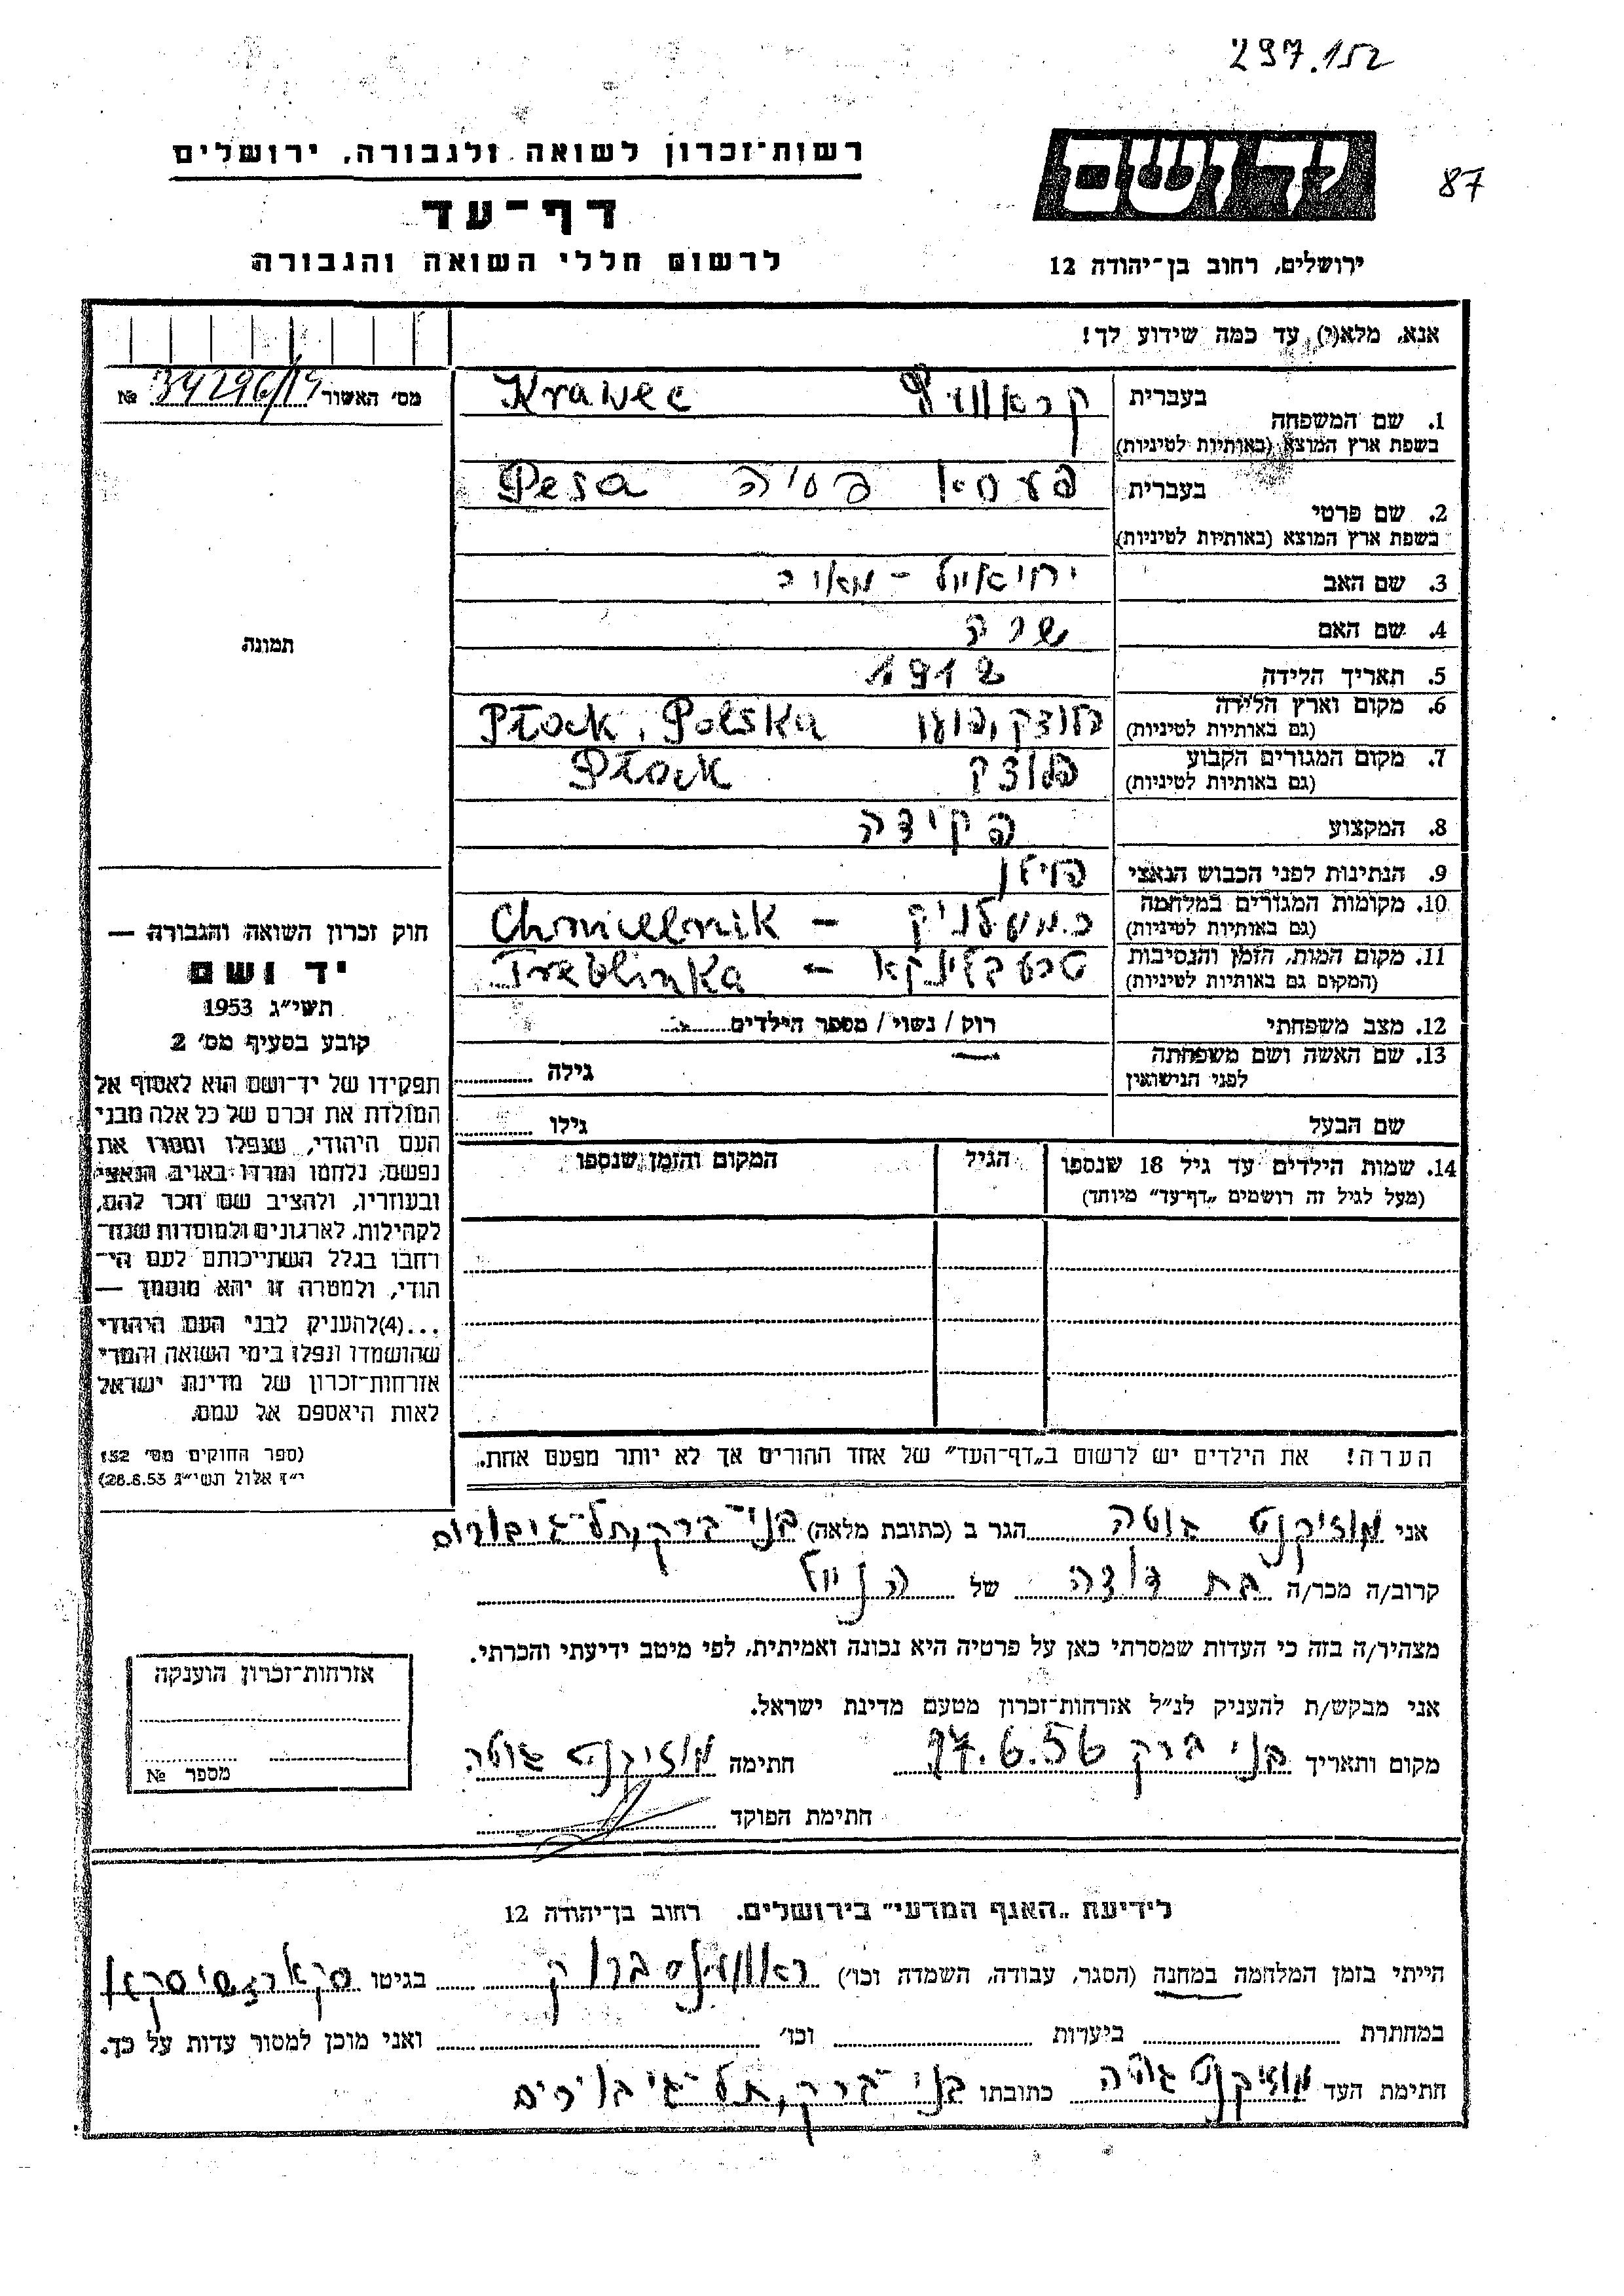 297.152
87
יד ושם
רשות־זכרון לשואה ולגבורה, ירושלים
דף־עד
לרשום חללי השואה והגבורה
ירושלים, רחוב בן־יהודה 12
אנא, מלא(י) עד כמה שידוע לך!
מס׳ האשור 34296/19 №
בעברית
1. שם המשפחה Krawec
בשפת ארץ המוצא (באותיות לטיניות)
בעברית פעסא פסיה Pesa
2. שם פרטי
בשפת ארץ המוצא (באותיות לטיניות)
3. שם האב
4. שם האם שרה
5. תאריך הלידה 1912
6. מקום וארץ הלידה Płock, Polska
(גם באותיות לטיניות)
7. מקום המגורים הקבוע פלוצק Płock
(גם באותיות לטיניות)
8. המקצוע פקידה
9. הנתינות לפני הכבוש הנאצי פולין
10. מקומות המגורים במלחמה Chmielnik –
(גם באותיות לטיניות)
11. מקום המות, הזמן והנסיבות טרעבלינקא – Treblinka
(המקום גם באותיות לטיניות)
12. מצב משפחתי רוק / נשוי / מספר הילדים
13. שם האשה ושם משפחתה
לפני הנישואין גילה
שם הבעל גילו
14. שמות הילדים עד גיל 18 שנספו הגיל המקום והזמן שנספו
(מעל לגיל זה רושמים „דף־עד״ מיוחד)
הערה! את הילדים יש לרשום ב„דף־העד״ של אחד ההורים אך לא יותר מפעם אחת.
תמונה
חוק זכרון השואה והגבורה —
יד ושם
תשי״ג 1953
קובע בסעיף מס׳ 2
תפקידו של יד־ושם הוא לאסוף אל
המולדת את זכרם של כל אלה מבני
העם היהודי, שנפלו ומסרו את
נפשם, נלחמו ומרדו באויב הנאצי
ובעוזריו, ולהציב שם וזכר להם,
לקהילות, לארגונים ולמוסדות שנח־
רחבו בגלל השתייכותם לעם הי־
הודי, ולמטרה זו יהא מוסמך —
...(4)להעניק לבני העם היהודי
שהושמדו ונפלו בימי השואה והמרי
אזרחות־זכרון של מדינת ישראל
לאות היאספם אל עמם.
(ספר החוקים מס׳ 132
י״ז אלול תשי״ג 28.8.53)
אני מוזיקנט גוטה הגר ב (כתובת מלאה) בני־ברק, תל־גיבורים
קרוב/ה מכר/ה בת דודה של הנ״ל
מצהיר/ה בזה כי העדות שמסרתי כאן על פרטיה היא נכונה ואמיתית, לפי מיטב ידיעתי והכרתי.
אני מבקש/ת להעניק לנ״ל אזרחות־זכרון מטעם מדינת ישראל.
מקום ותאריך בני ברק 17.6.56 חתימה מוזיקנט גוטה
חתימת הפוקד
אזרחות־זכרון הוענקה
מספר №
לידיעת „האגף המדעי״ בירושלים, רחוב בן־יהודה 12
הייתי בזמן המלחמה במחנה (הסגר, עבודה, השמדה וכו׳) בגיטו
במחתרת ביערות וכו׳ ואני מוכן למסור עדות על כך.
חתימת העד מוזיקנט גוטה כתובתו בני־ברק, תל־גיבורים